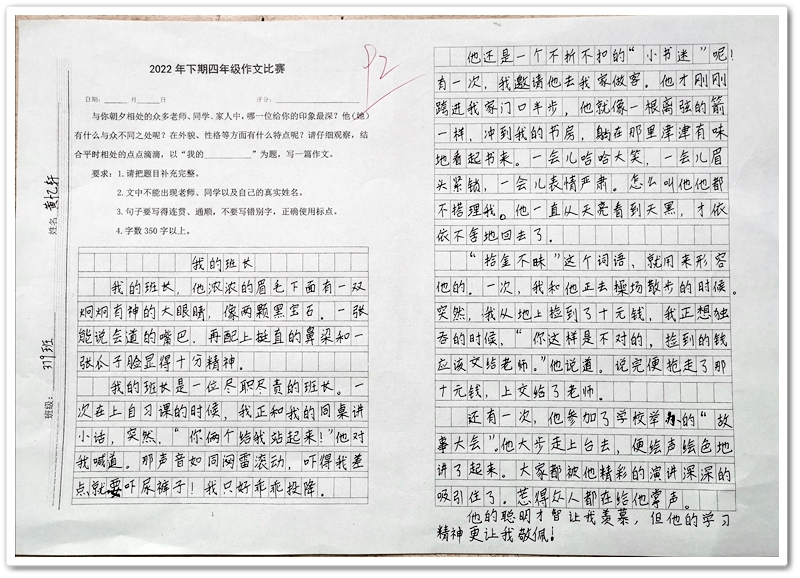 2022 年下期四年级作文比赛
92
日期：______ 月______日 评分：
与你朝夕相处的众多老师、同学、家人中，哪一位给你的印象最深？他（她）
有什么与众不同之处呢？在外貌、性格等方面有什么特点呢？请仔细观察，结
合平时相处的点点滴滴，以“我的__________”为题，写一篇作文。
要求：1.请把题目补充完整。
2.文中不能出现老师、同学以及自己的真实姓名。
3.句子要写得连贯、通顺，不要写错别字，正确使用标点。
4.字数 350 字以上。
姓名 黄忆轩
班级：379班
我的班长
我的班长，他浓浓的眉毛下面有一双
炯炯有神的大眼睛，像两颗黑宝石。一张
能说会道的嘴巴，再配上挺直的鼻梁和一
张瓜子脸显得十分精神。
我的班长是一位尽职尽责的班长。一
次在上自习课的时候，我正和我的同桌讲
小话，突然，“你俩个给我站起来！”他对
我喊道。那声音如同网雷滚动，吓得我差
点就要吓尿裤子！我只好乖乖投降。
他还是一个不折不扣的“小书迷”呢！
有一次，我邀请他去我家做客。他才刚刚
跨进我家门口半步，他就像一根离弦的箭
一样，冲到我的书房，躺在那里津津有味
地看起书来。一会儿哈哈大笑，一会儿眉
头紧锁，一会儿表情严肃。怎么叫他他都
不搭理我。他一直从天亮看到天黑，才依
依不舍地回去了。
“拾金不昧”这个词语，就用来形容
他的。一次，我和他正去操场散步的时候。
突然，我从地上捡到了十元钱，我正想独
吞的时候，“你这样是不对的，捡到的钱
应该交给老师。”他说道。说完便抢走了那
十元钱，上交给了老师。
还有一次，他参加了学校举办的“故
事大会”。他大步走上台去，便绘声绘色地
讲了起来。大家都被他精彩的演讲深深的
吸引住了。惹得众人都在给他掌声。
他的聪明才智让我羡慕，但他的学习
精神更让我敬佩！